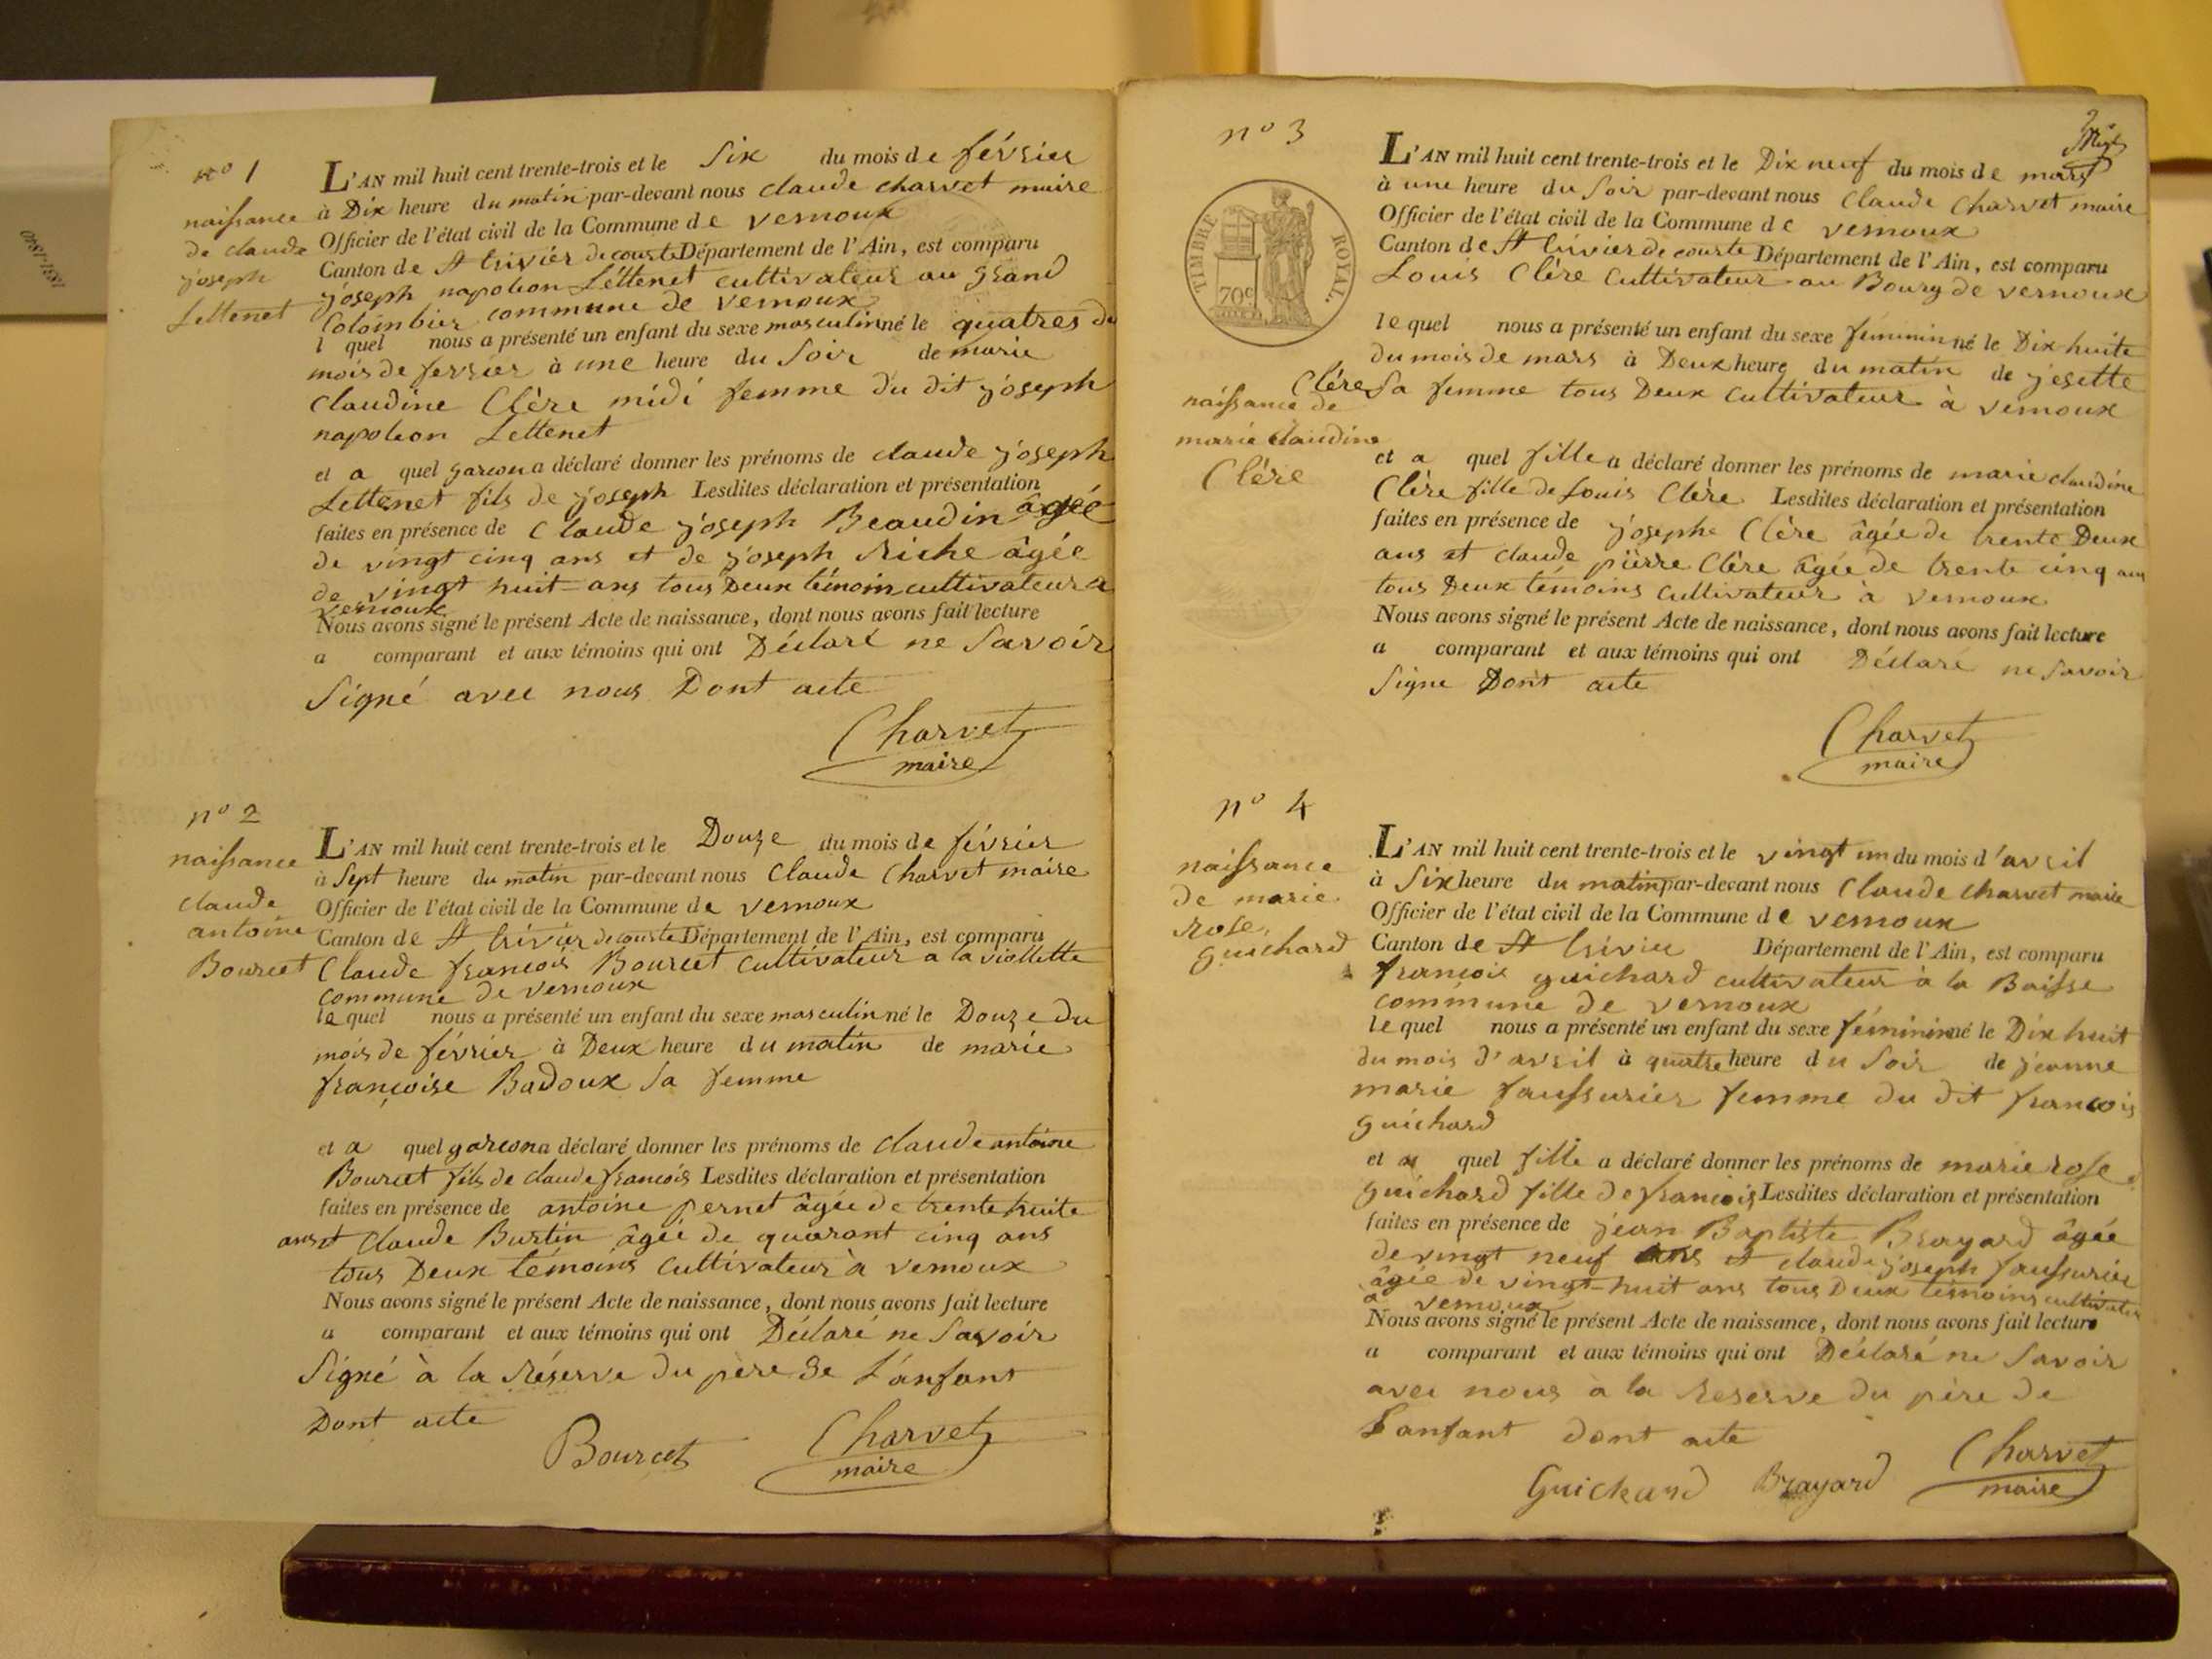 nº 1
naissance
de claude
joseph
Lettenet
L'AN mil huit cent trente-trois et le Six du mois de février
à Dix heure du matin par-devant nous claude charvet maire
Officier de l'état civil de la Commune de vernoux
Canton de St trivier de courte Département de l'Ain, est comparu
joseph napoleon Lettenet cultivateur au grand
Colombier commune de vernoux
l quel nous a présenté un enfant du sexe masculin né le quatres du
mois de fevrier à une heure du Soir de marie
Claudine Clère midi femme du dit joseph
napoleon Lettenet
et a quel garcon a déclaré donner les prénoms de claude joseph
Lettenet fils de joseph Lesdites déclaration et présentation
faites en présence de Claude joseph Beaudin âgée
de vingt cinq ans et de joseph Riche âgée
de vingt huit ans tous Deux témoin cultivateur a
vernoux
Nous avons signé le présent Acte de naissance, dont nous avons fait lecture
a comparant et aux témoins qui ont Déclaré ne Savoir
Signé avec nous Dont acte
Charvet
maire
nº 2
naissance
claude
antoine
Bourcet
L'AN mil huit cent trente-trois et le Douze du mois de février
à Sept heure du matin par-devant nous Claude Charvet maire
Officier de l'état civil de la Commune de vernoux
Canton de St trivier de courte Département de l'Ain, est comparu
Claude francois Bourcet cultivateur a la viollette
commune de vernoux
le quel nous a présenté un enfant du sexe masculin né le Douze Du
mois de février à Deux heure du matin de marie
françoise Badoux Sa femme
et a quel garcon a déclaré donner les prénoms de claude antoine
Bourcet fils de claude francois Lesdites déclaration et présentation
faites en présence de antoine pernet âgée de trente huite
ans et Claude Burtin âgée de quarant cinq ans
tous Deux témoins cultivateur à vernoux
Nous avons signé le présent Acte de naissance, dont nous avons fait lecture
a comparant et aux témoins qui ont Déclaré ne Savoir
Signé à la Réserve Du père De L'anfant
Dont acte
Bourcet
Charvet
maire
nº 3
TIMBRE ROYAL.
70c
naissance de
marie claudine
Clère
L'AN mil huit cent trente-trois et le Dix neuf du mois de mars
à une heure du Soir par-devant nous Claude Charvet maire
Officier de l'état civil de la Commune de vernoux
Canton de St trivier de courte Département de l'Ain, est comparu
Louis Clère Cultivateur au Bourg de vernoux
le quel nous a présenté un enfant du sexe féminin né le Dix huite
du mois de mars à Deux heure du matin de josette
Clère Sa femme tous Deux cultivateur à vernoux
et a quel fille a déclaré donner les prénoms de marie claudine
Clère fille de Louis Clère Lesdites déclaration et présentation
faites en présence de josephe Clère âgée de trente Deux
ans et claude pierre Clère âgée de trente cinq ans
tous Deux témoins cultivateur à vernoux
Nous avons signé le présent Acte de naissance, dont nous avons fait lecture
a comparant et aux témoins qui ont Déclaré ne Savoir
Signe Dont acte
Charvet
maire
nº 4
naissance
de marie
rose
guichard
L'AN mil huit cent trente-trois et le vingt un du mois d'avril
à Six heure du matin par-devant nous Claude charvet maire
Officier de l'état civil de la Commune de vernoux
Canton de St trivier Département de l'Ain, est comparu
françois guichard cultivateur à la Baisse
commune de vernoux
le quel nous a présenté un enfant du sexe féminin né le Dix huit
du mois d'avril à quatre heure du Soir de jeanne
marie faussurier femme du dit francois
guichard
et a quel fille a déclaré donner les prénoms de marie rose
guichard fille de francois Lesdites déclaration et présentation
faites en présence de jean Baptiste Brayard âgée
de vingt neuf ans et claude joseph faussurier
âgée de vingt-huit ans tous Deux témoins cultivateur
a vernoux
Nous avons signé le présent Acte de naissance, dont nous avons fait lecture
a comparant et aux témoins qui ont Déclaré ne Savoir
avec nous à la Reserve du père De
L'anfant dont acte
Guichard Brayard Charvet
maire